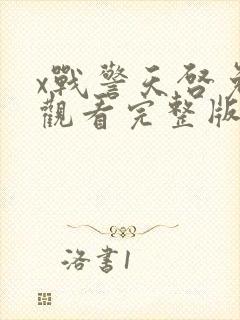 x戰警天啓免
觀看完整版
洛書1